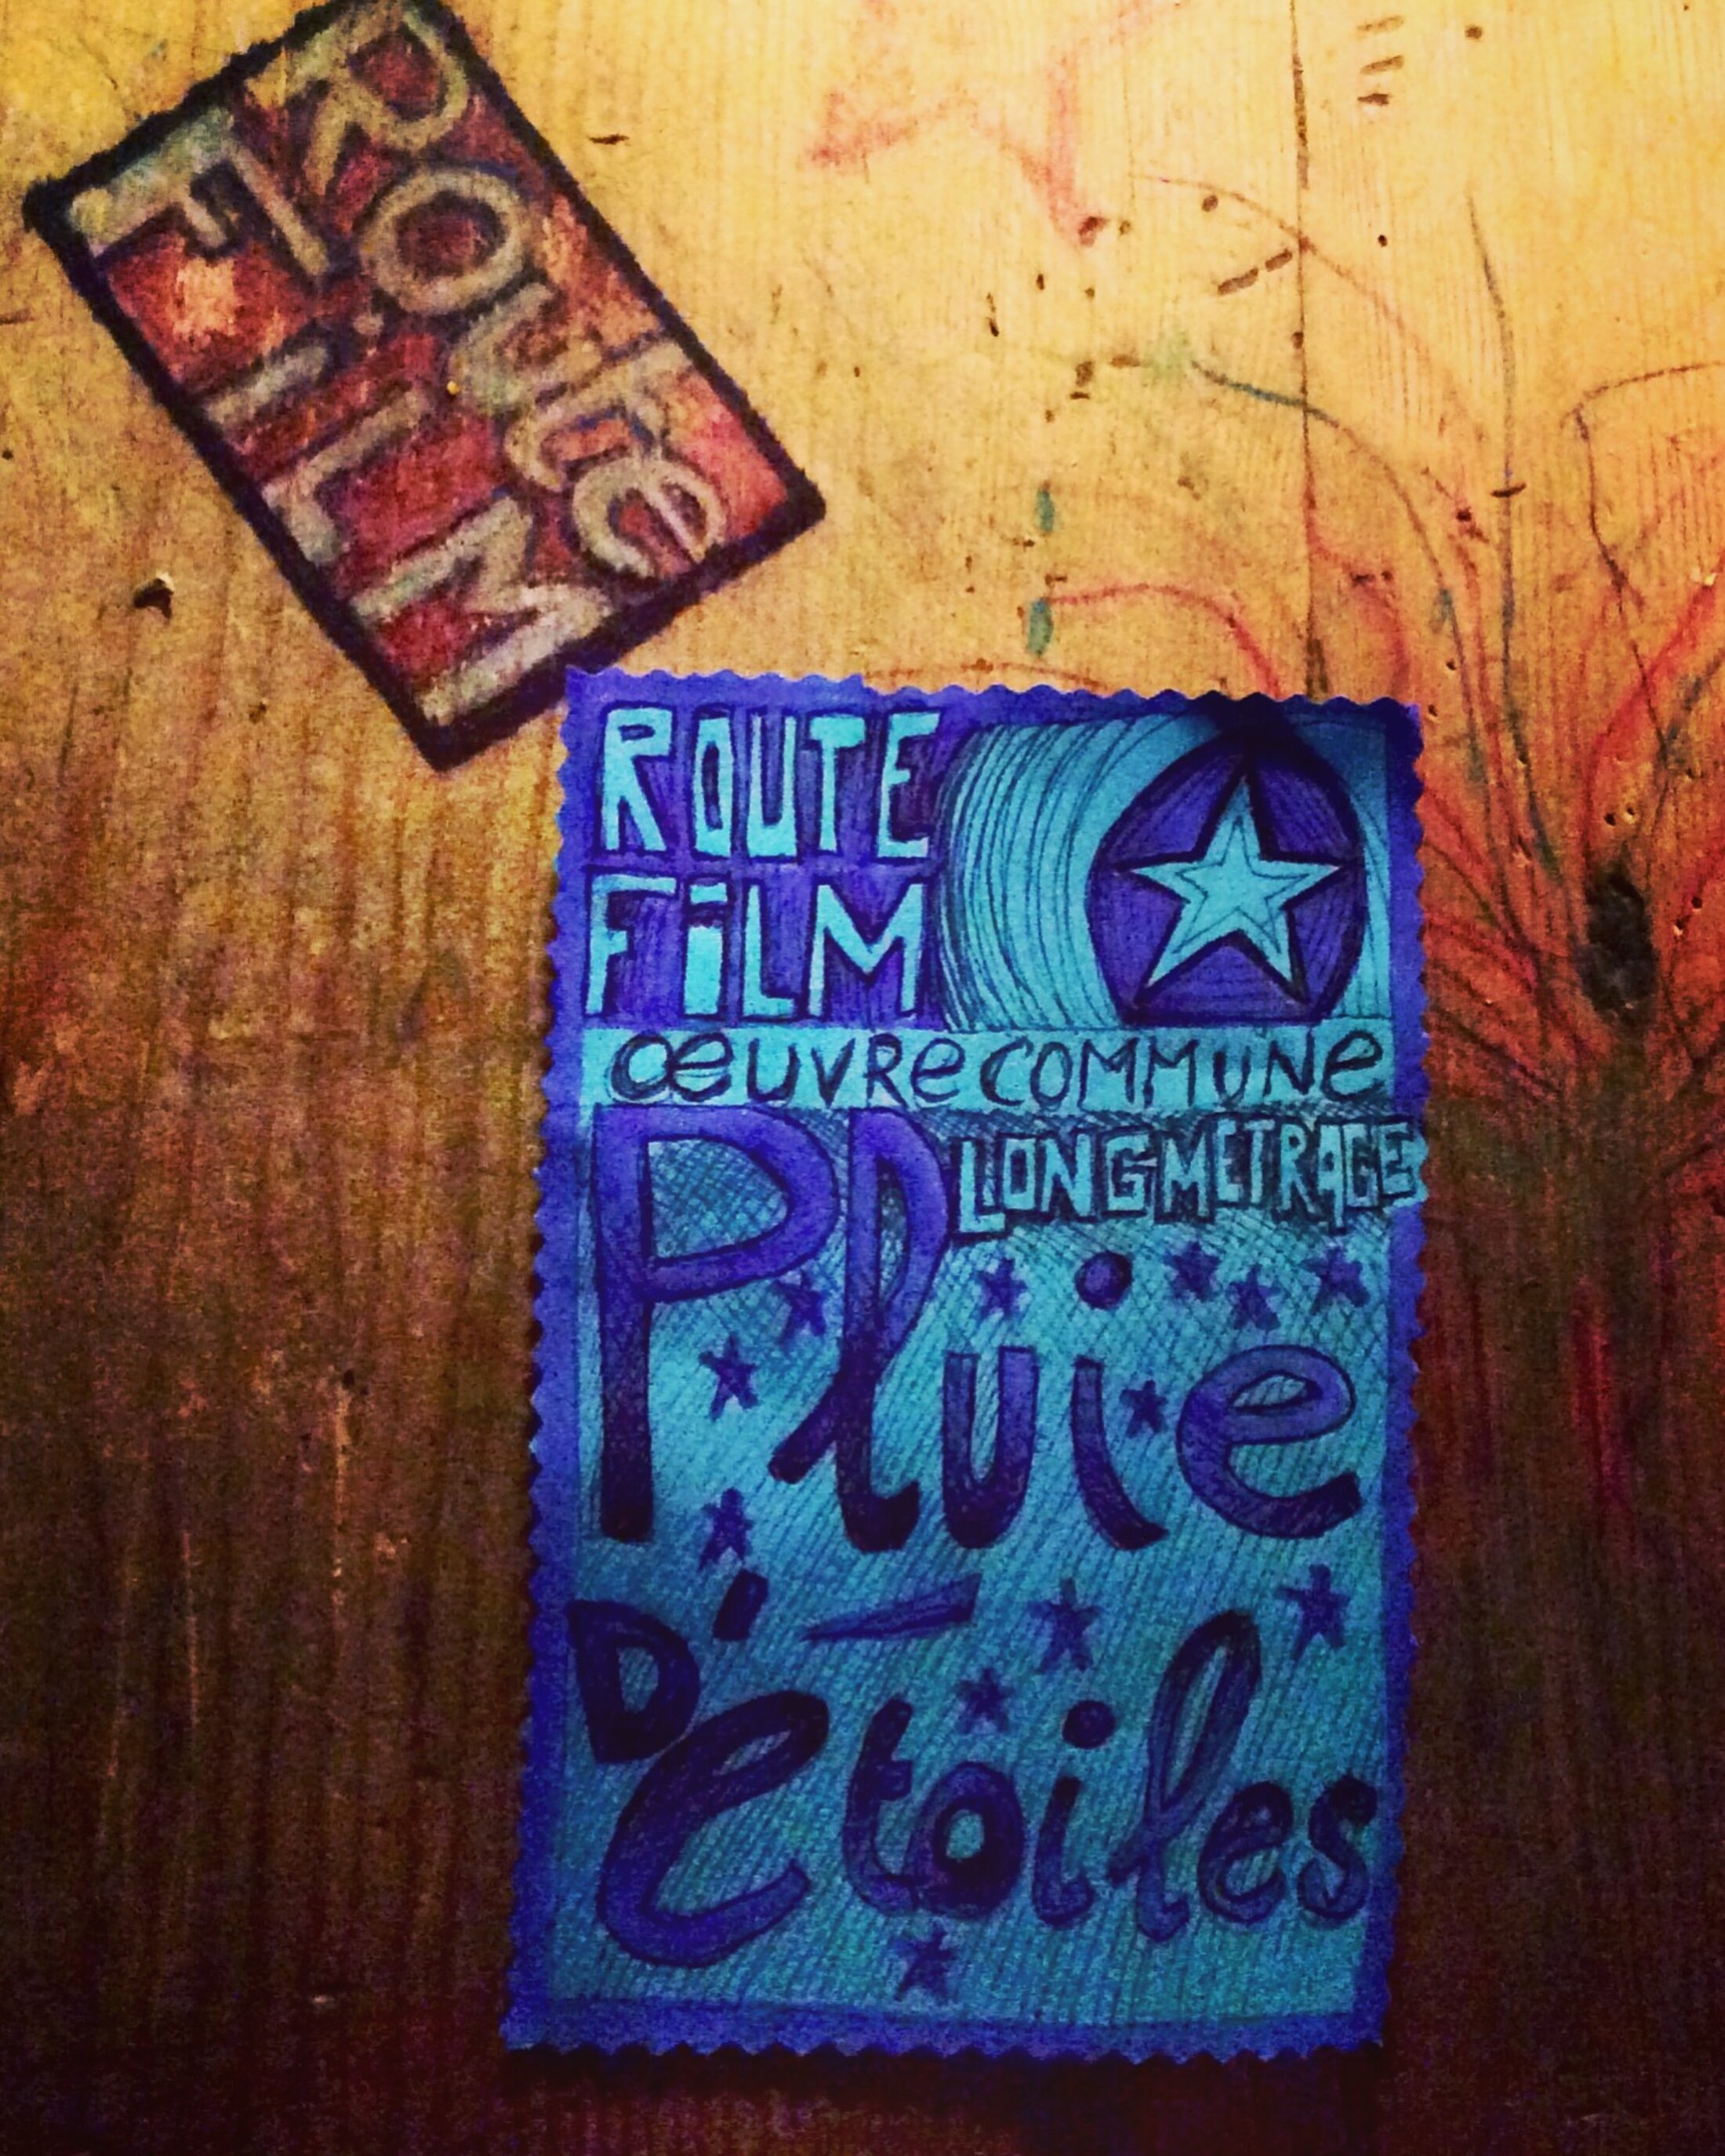 Route
FiLM
ROUTE
FiLM
œUVRe COMMUNe
LONG METRAGE
Pluie
D'étoiles